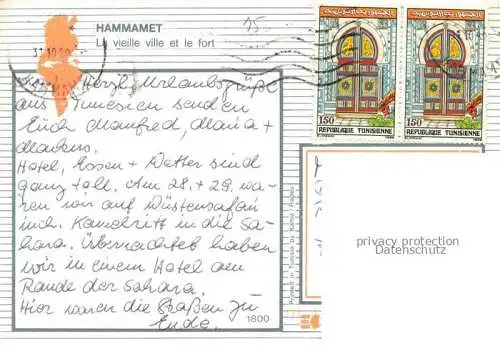 HAMMAMET
La vieille ville et le fort
15
31.10.89
HAMMAM
Herzl. Urlaubsgrüße
aus Tunesien senden
Euch Manfred, Maria +
Markus.
Hotel, Essen + Wetter sind
ganz toll. Am 28. + 29. wa-
ren wir auf Wüstensafari
incl. Kamelritt in die Sa-
hara. Übernachtet haben
wir in einem Hotel am
Rande der Sahara.
Hier waren die Straßen zu
Ende.
1800
150
REPUBLIQUE TUNISIENNE
150
REPUBLIQUE TUNISIENNE
Printed in Tunisia by Kahia
privacy protection
Datenschutz